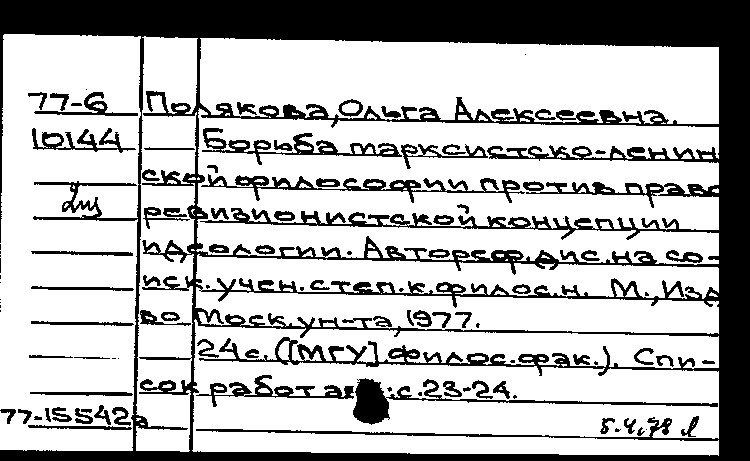 77-6 Полякова, Ольга Алексеевна.
10144 Борьба марксистско-ленин
ской философии против право
ревизионистской концепции
идеологии. Автореф. дис. на со-
иск. учен. степ. к. филос. н. М., Изд
во Моск. ун-та, 1977.
24 с. ([МГУ] филос. фак.). Спи-
сок работ ав : с. 23-24.
77-15542а 5.4.78